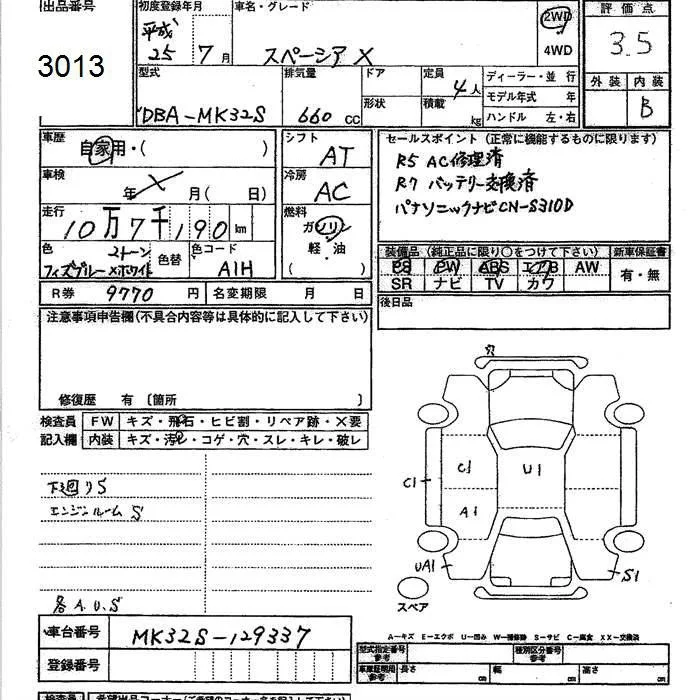 出品番号 初度登録年月 車名・グレード 2WD 評価点
3013 平成25 7月 スペーシア X 4WD 3.5
型式 排気量 ドア 定員 4人 ディーラー・並 行 外装 内装
形状 積載 kg モデル年式 年
DBA-MK32S 660 CC ハンドル 左・右 B
車歴 自家用・( ) シフト AT セールスポイント (正常に機能するものに限ります)
R5 AC修理済
車検 年 X 月( 日) 冷房 AC R7 バッテリー交換済
走行 10万7千190 km 燃料 ガソリン パナソニックナビCN-S310D
軽・油
( )
色 2トーン 色替 色コード 装備品 (純正品に限り○をつけて下さい) 新車保証書
フィズブルー×ホワイト A1H PS PW ABS エアB AW 有・無
SR ナビ TV カワ
R券 9770 円 名変期限 月 日 後日品
注意事項申告欄(不具合内容等は具体的に記入して下さい)
修復歴 有 〔箇所 〕
検査員 FW キズ・飛石・ヒビ割・リペア跡・×要
記入欄 内装 キズ・汚レ・コゲ・穴・スレ・キレ・破レ
穴
C1 C1 U1
A1
下廻りS
エンジンルーム S
UA1 S1
スペア
各A.U.S
A-キズ E-エクボ U-凹み W-補修跡 S-サビ C-腐食 XX-交換済
車台番号 MK32S-129337 型式指定番号 参考 種別区分番号 参考
登録番号 車庫証明用 参考 長さ cm 幅 cm 高さ cm